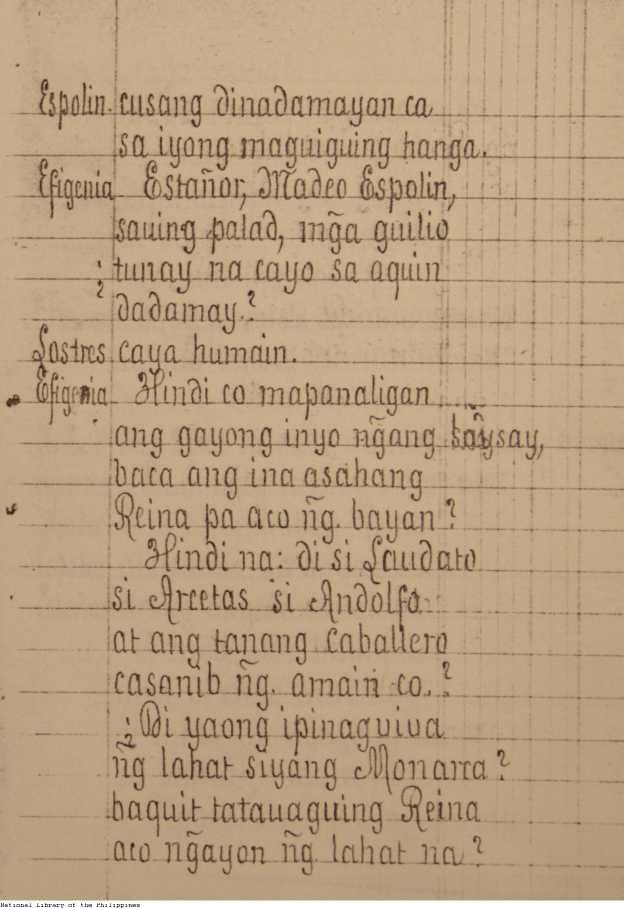 Espolin. cusang dinadamayan ca
sa iyong maguiguing hanga.
Efigenia Estañor, Madeo Espolin,
sauing palad, mg̃a guilio
¿tunay na cayo sa aquin
dadamay.?
Sostres caya humain.
Efigenia Hindi co mapanaligan
ang gayong inyo ng̃ang saysay,
baca ang ina asahang
Reina pa aco ñg. bayan?
Hindi na: di si Laudato
si Arcetas si Andolfo
at ang tanang Caballero
casanib ñg. amain co.?
¿Di yaong ipinaguiua
ñg lahat siyang Monarca?
baquit tatauaguing Reina
aco ng̃ayon ñg. lahat na?
National Library of the Philippines